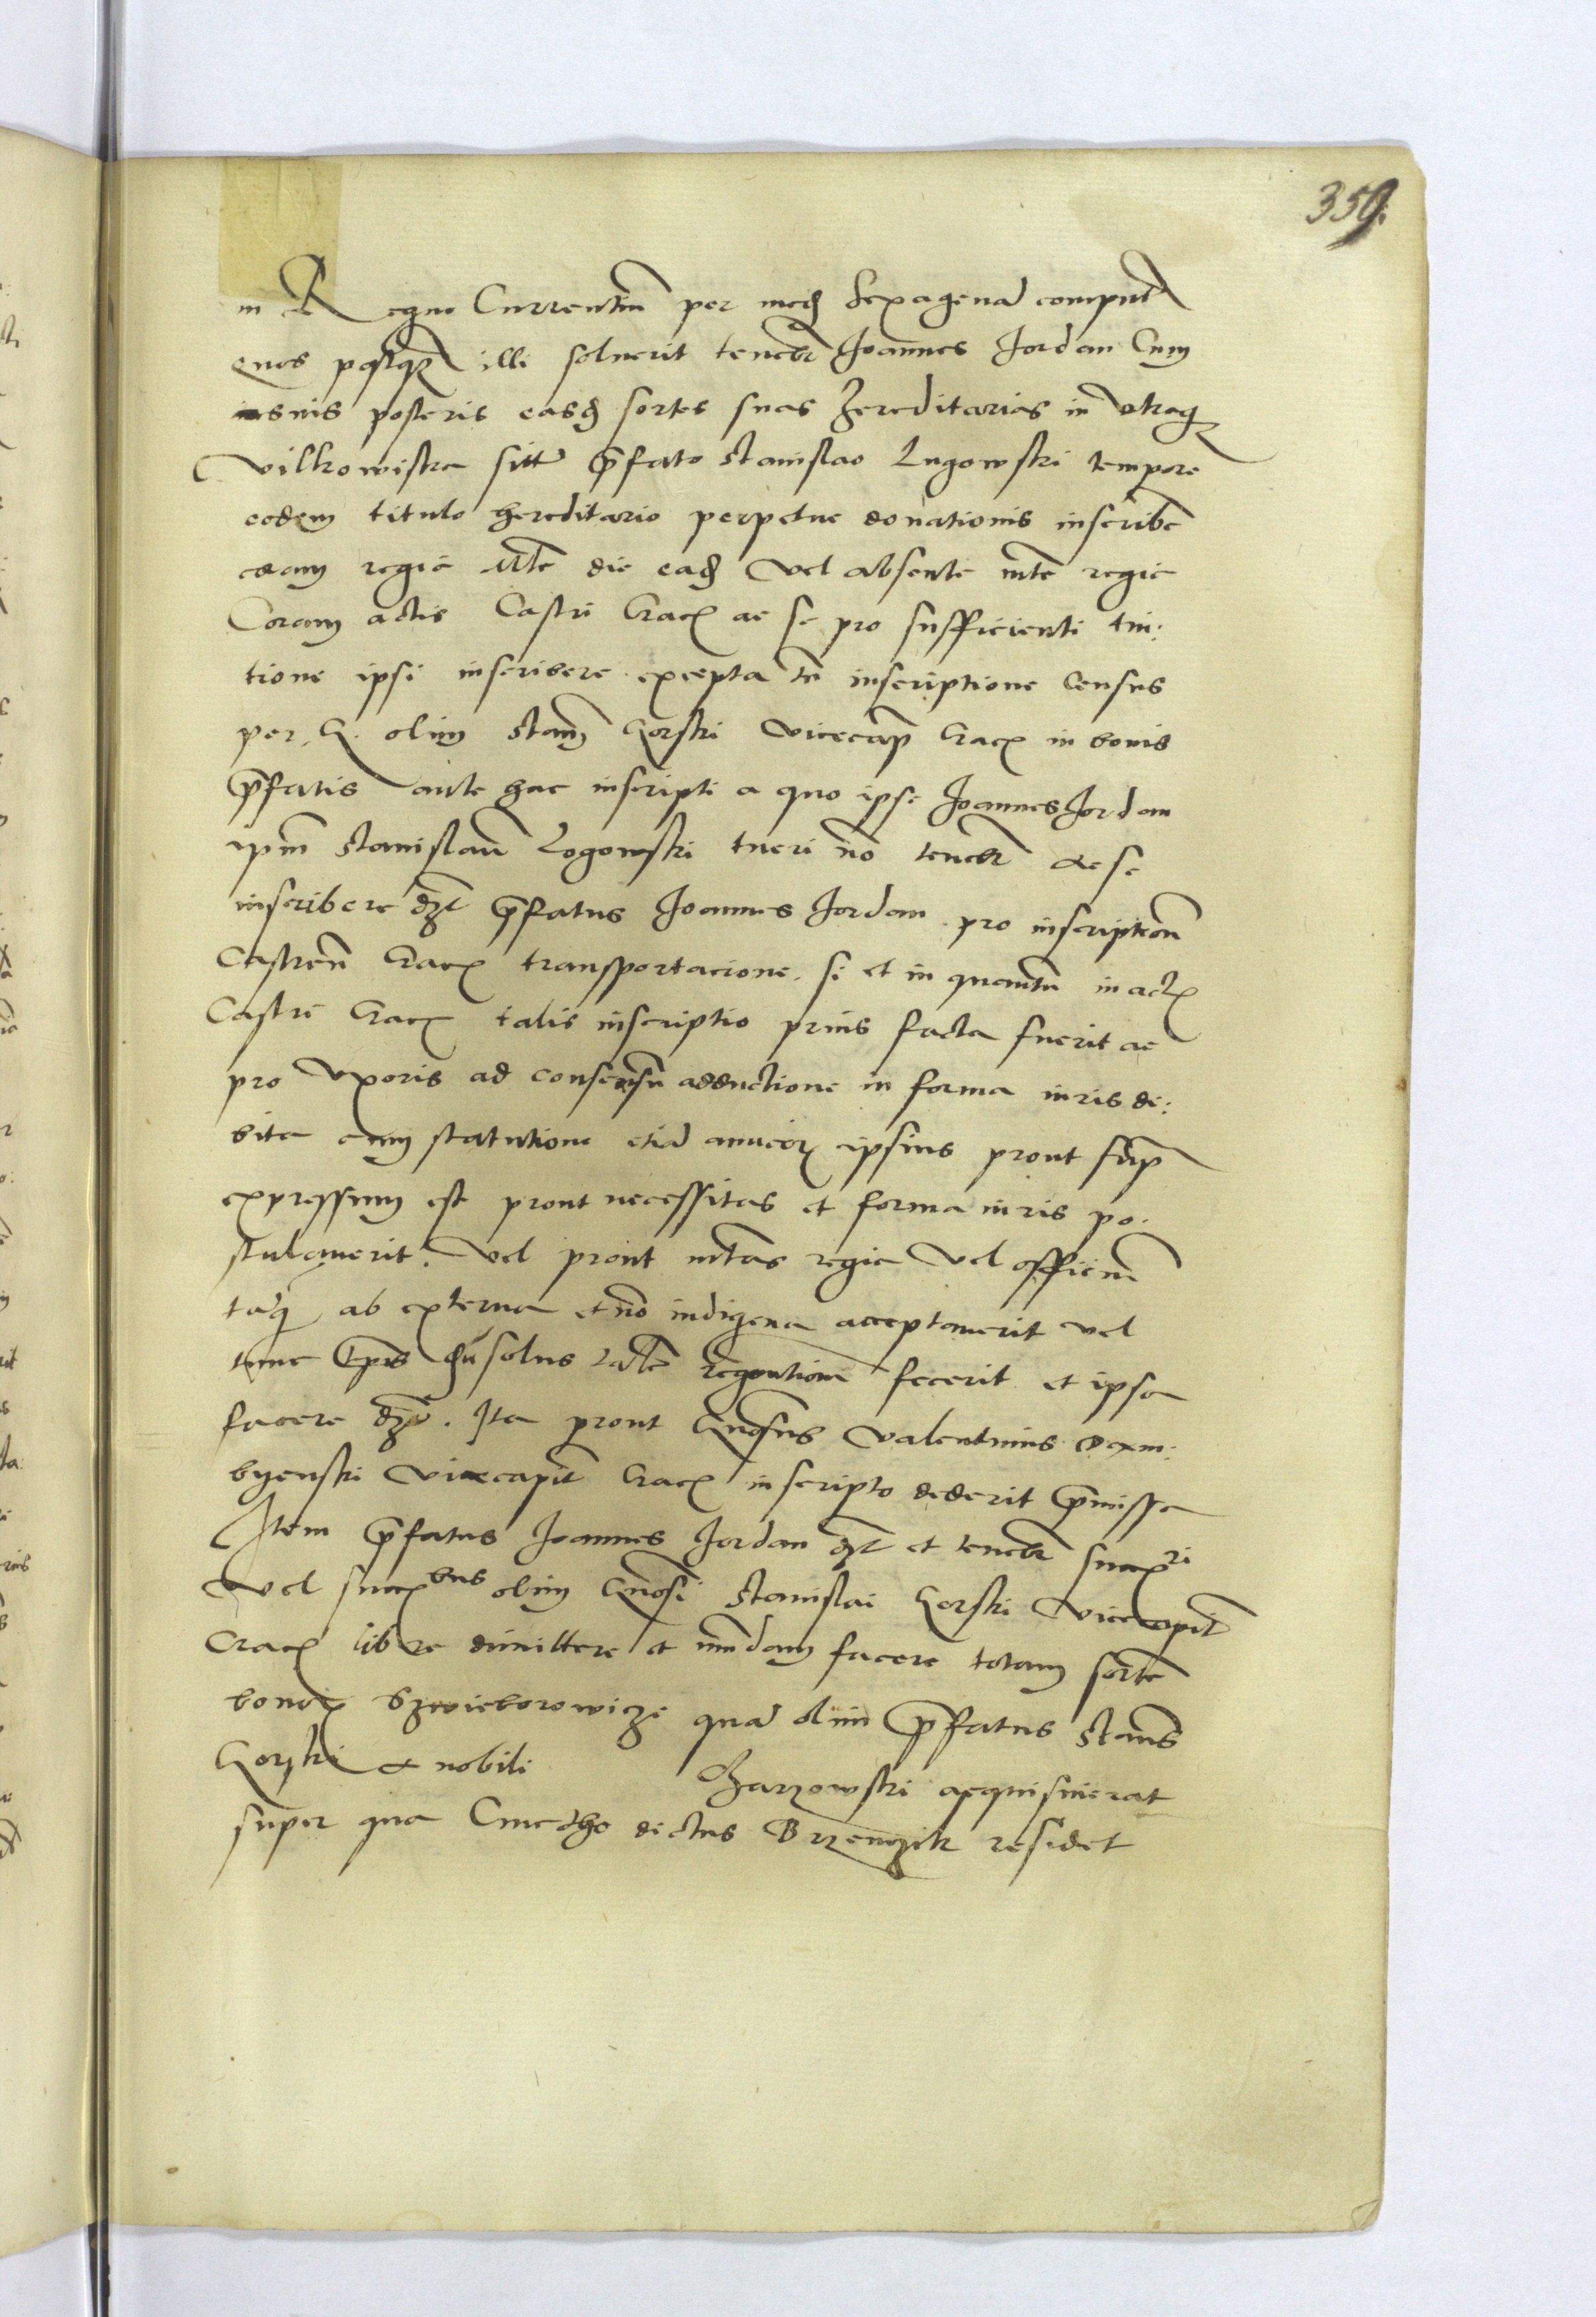 359.
in Regno Currentium per med Sexagenas comput
quos postq illi soluerit tenebr Joannes Jordan Cum
suis posteris easd sortes suas hereditarias in vtraq
Vilkowiska sitt pfato Stanislao Lugowski tempore
eodem titulo hereditario perpetue donationis inscribe
coram regie Mte die ead Vel absente mte regie
Coram actis Castri Crac ac se pro sufficienti tui:
tione ipsi inscribere excepta tn inscriptione Census
per G. olim Stan Gorski Vicecap Crac in bonis
pfatis ante hac inscripti a quo ipse Joannes Jordan
ipm Stanislau Logowski tueri no tenebr ac se
inscribere dz pfatus Joannes Jordan pro inscription
Castren Crac transportacione. si et in quantu in act
Castri Crac talis inscriptio prius facta fuerit ac
pro Vxoris ad consensu adductione in forma iuris de:
bita cum statutione etia amicor ipsius prout sup
expressum est prout necessitas et forma iuris po.
stulauerit. Vel prout mtas regia Vel officium
taq ab externa et no indigena acceptauerit vel
tunc solus tale fecerit et ipse
facere dz. Ita prout Gnosus Valentinus Dem:
byenski Vicecapit Crac in scripto dederit pmissa
Item pfatus Joannes Jordan dz et tenebr succri
Vel succbus olim Gnosi Stanislai Gorski Vicecapit
Crac libere dimittere et mundam facere totam sorte
bonor Szwieborowicze qua olim pfatus Stans
Gorski a nobili Czarzowski acquisiuerat
super qua Cmetho dictus Brzenczik residet